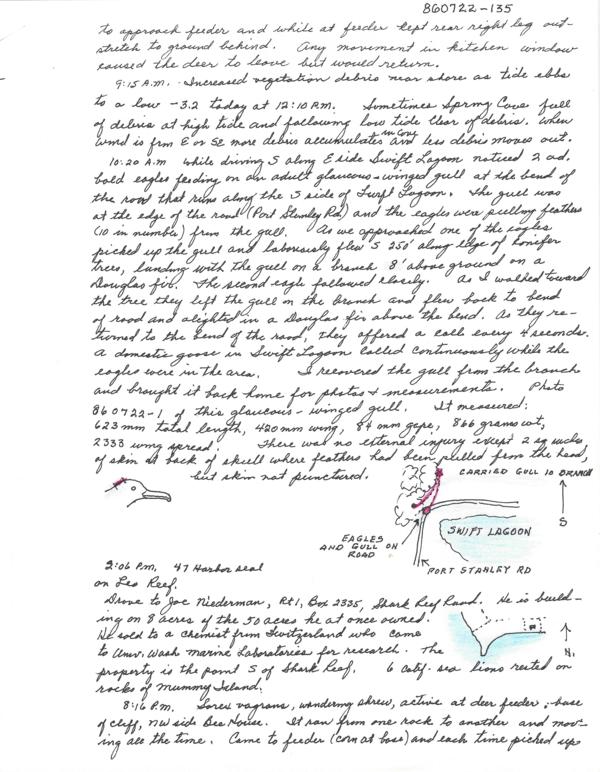 860722-135
to approach feeder and while at feeder kept rear right leg out-
stretch to ground behind. Any movement in kitchen window
caused the deer to leave but would return.
9:15 A.M. Increased vegetation debris near shore as tide ebbs
to a low -3.2 today at 12:10 P.M. Sometimes Spring Cove full
of debris at high tide and following low tide clear of debris. When
wind is from E or SE more debris accumulates in Cove and less debris moves out.
10:20 A.M While driving S along E side Swift Lagoon noticed 2 ad.
bald eagles feeding on an adult glaucous-winged gull at the bend of
the road that runs along the S side of Swift Lagoon. The gull was
at the edge of the road (Port Stanley Rd) and the eagles were pulling feathers
(10 in number) from the gull. As we approached one of the eagles
picked up the gull and laboriously flew S 250' along edge of conifer
trees, landing with the gull on a branch 8' above ground on a
Douglas fir. The second eagle followed closely. As I walked toward
the tree they left the gull on the branch and flew back to bend
of road and alighted in a Douglas fir above the bend. As they re-
turned to the bend of the road, they offered a call every 4 seconds.
A domestic goose in Swift Lagoon called continuously while the
eagles were in the area. I recovered the gull from the branch
and brought it back home for photos & measurements. Photo
860722-1 of this glaucous-winged gull. It measured:
623 mm total length, 420 mm wing, 84 mm gape, 866 grams wt,
2333 wing spread. There was no external injury except 2 sq inches
of skin at back of skull where feathers had been pulled from the head,
but skin not punctured.
CARRIED GULL TO BRANCH
S
EAGLES
AND GULL ON
ROAD
SWIFT LAGOON
PORT STANLEY RD
2:06 P.M. 47 Harbor seal
on Leo Reef.
Drove to Joe Niederman, Rt 1, Box 2335, Shark Reef Road. He is build-
ing on 8 acres of the 50 acres he at once owned.
He sold to a chemist from Switzerland who came
to Univ. Wash marine Laboratories for research. The
property is the point S of Shark Reef. 6 Calif. sea lions rested on
rocks of Mummy Island.
N.
8:16 P.M. Sorex vagrans, wandering shrew, active at deer feeder, base
of cliff, NW side Bee House. It ran from one rock to another and mov-
ing all the time. Came to feeder (corn at base) and each time picked up